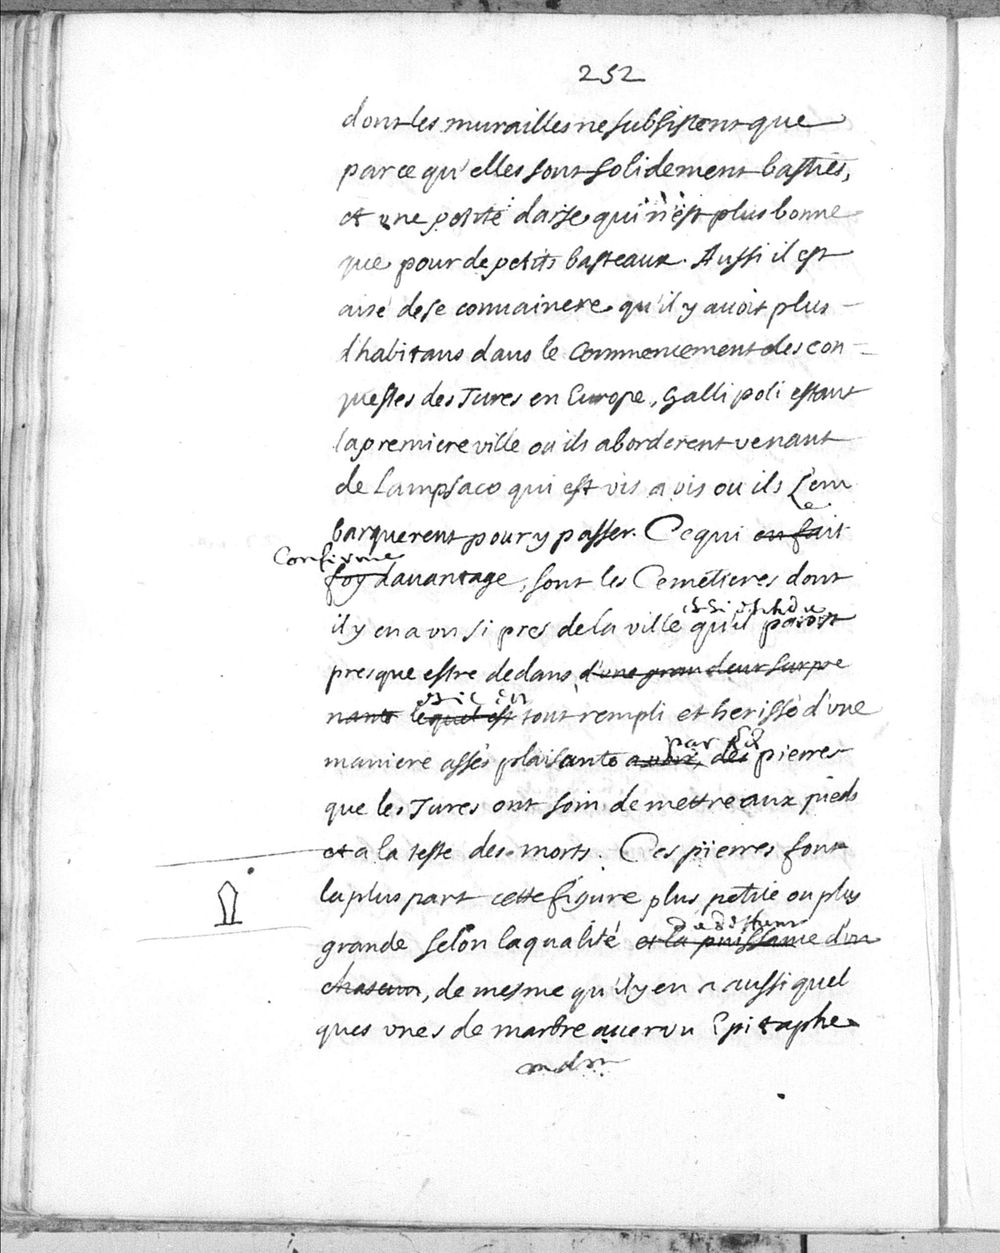 252
dont les murailles ne subsistent que
parce qu'elles sont solidement basties,
et une petite darse qui n'est plus bonne
que pour de petits basteaux. Aussi il est
aisé de se convaincre qu'il y avoit plus
d'habitans dans le commencement des con-
questes des Turcs en Europe, Gallipoli estant
la premiere ville ou ils aborderent venant
de Lampsaco qui est vis a vis ou ils s'em
barquerent pour y passer. Ce qui en fait
le
Confirme
foy davantage, sont les Cemetieres dont
il y en a un si pres de la ville qu'il paroist
presque estre dedans, d'une grandeur surpre
nante lequel est tout rempli et herissé d'une
maniere assés plaisante a voir, des pierres
par
que les Turcs ont soin de mettre aux pieds
et a la teste des morts. Ces pierres sont
la plus part cette figure plus petite ou plus
grande selon la qualité et la puissance d'un
chascun, de mesme qu'il y en a aussi quel
ques unes de marbre avec un Epitaphe